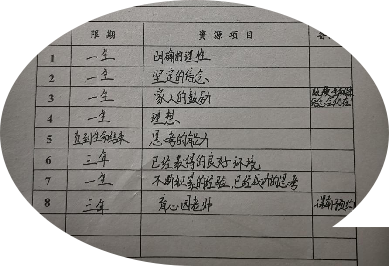 限期 资源项目
1 一生 的理性
2 一生 坚定的信念
3 一生 家人的鼓励
4 一生 理想
5 直到生命结束 思考的能力
6 三年 已经获得的良好环境
7 一生 不断积累的经验,已经成功的思考
8 三年 有心因老师